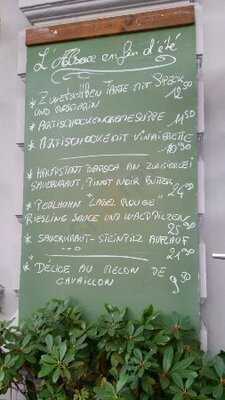 L'Alsace en fin d'été
* Zwetschgen Tarte mit Speck
und Rosmarin 12.50
* Artischockencremesuppe 11.50
* Artischocke mit Vinaigrette
10.50
* Hanfstant Barsch an Zwiebel
Sauerkraut, Pinot Noir Butter 24.50
* Perlhuhn "Label Rouge"
Riesling Sauce und Waldpilzen
25.50
* Sauerkraut-Steinpilz Auflauf
21.50
* Délice au Melon de
Cavaillon 9.50